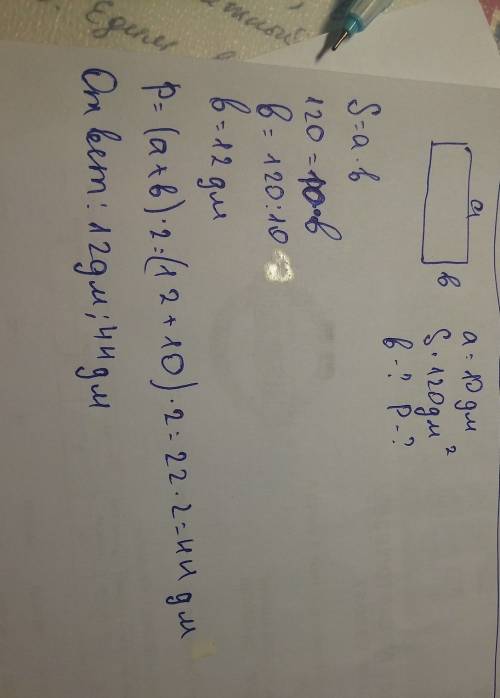 a
b
a = 10 дм
S = 120 дм²
b - ? P - ?
S = a · b
120 = 10 · b
b = 120 : 10
b = 12 дм
P = (a + b) · 2 = (12 + 10) · 2 = 22 · 2 = 44 дм
Ответ: 12 дм; 44 дм